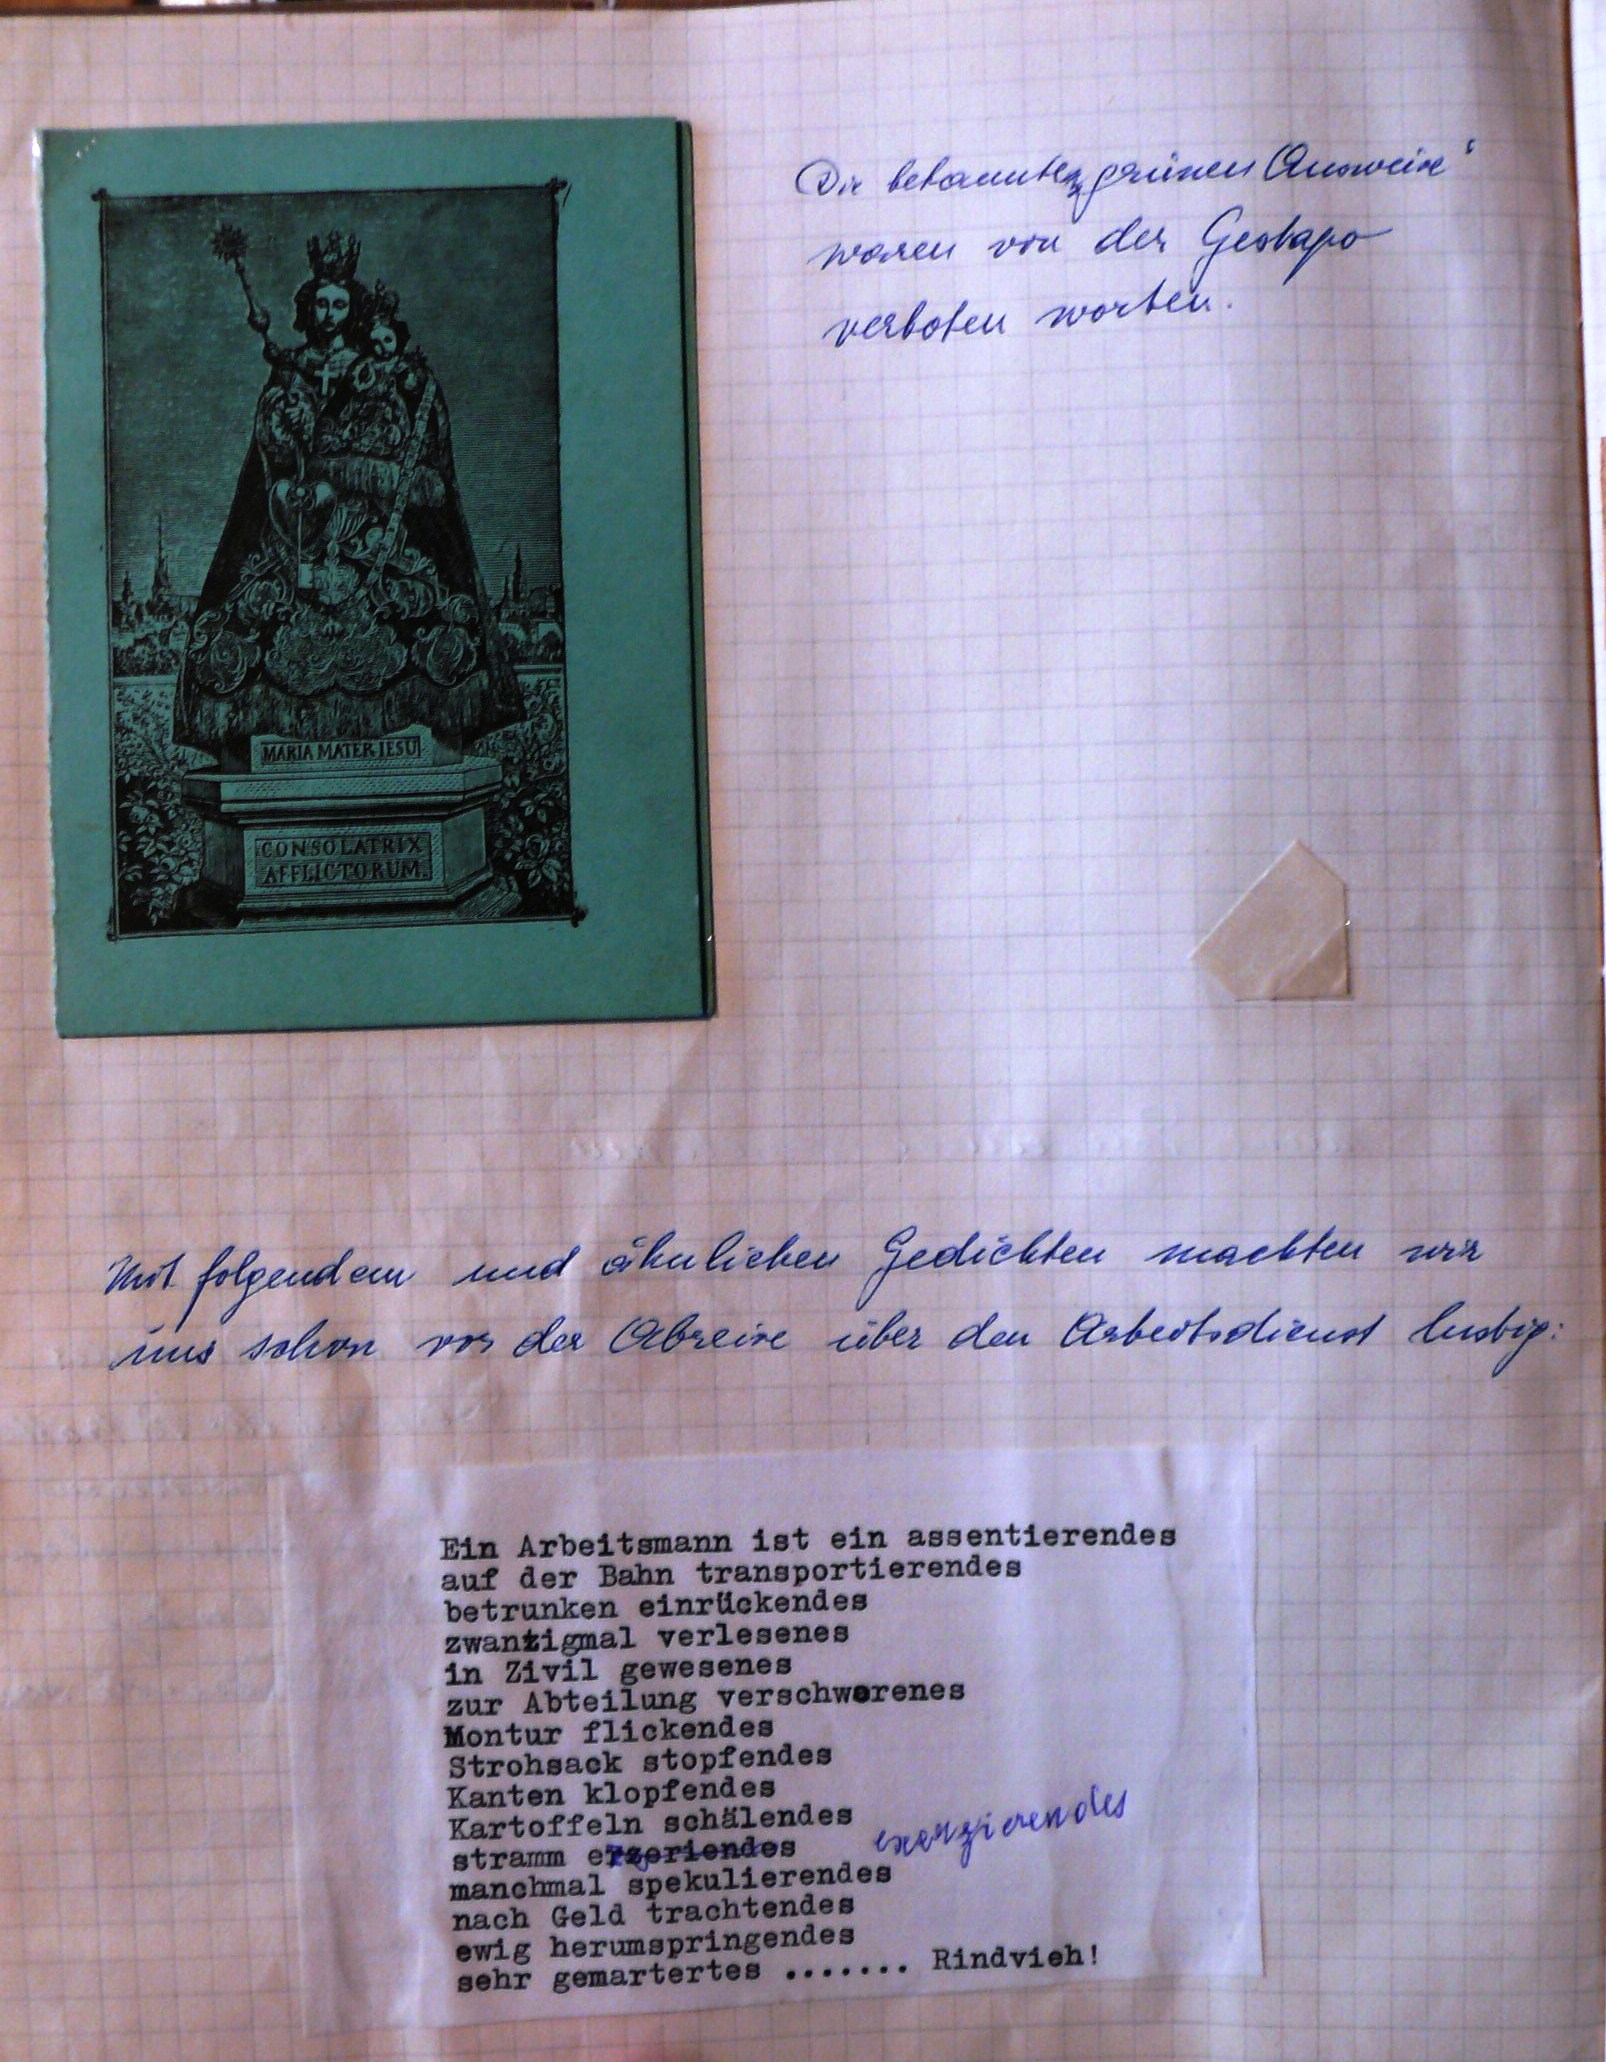 MARIA MATER JESU
CONSOLATRIX
AFFLICTORUM.
Die bekannten „grünen Ausweise“
waren von der Gestapo
verboten worten.
Mit folgendem und ähnlichen Gedichten machten wir
uns schon vor der Abreise über den Arbeitsdienst lustig:
Ein Arbeitsmann ist ein assentierendes
auf der Bahn transportierendes
betrunken einrückendes
zwanzigmal verlesenes
in Zivil gewesenes
zur Abteilung verschworenes
Montur flickendes
Strohsack stopfendes
Kanten klopfendes
Kartoffeln schälendes
stramm erzeriendes exerzierendes
manchmal spekulierendes
nach Geld trachtendes
ewig herumspringendes
sehr gemartertes ....... Rindvieh!